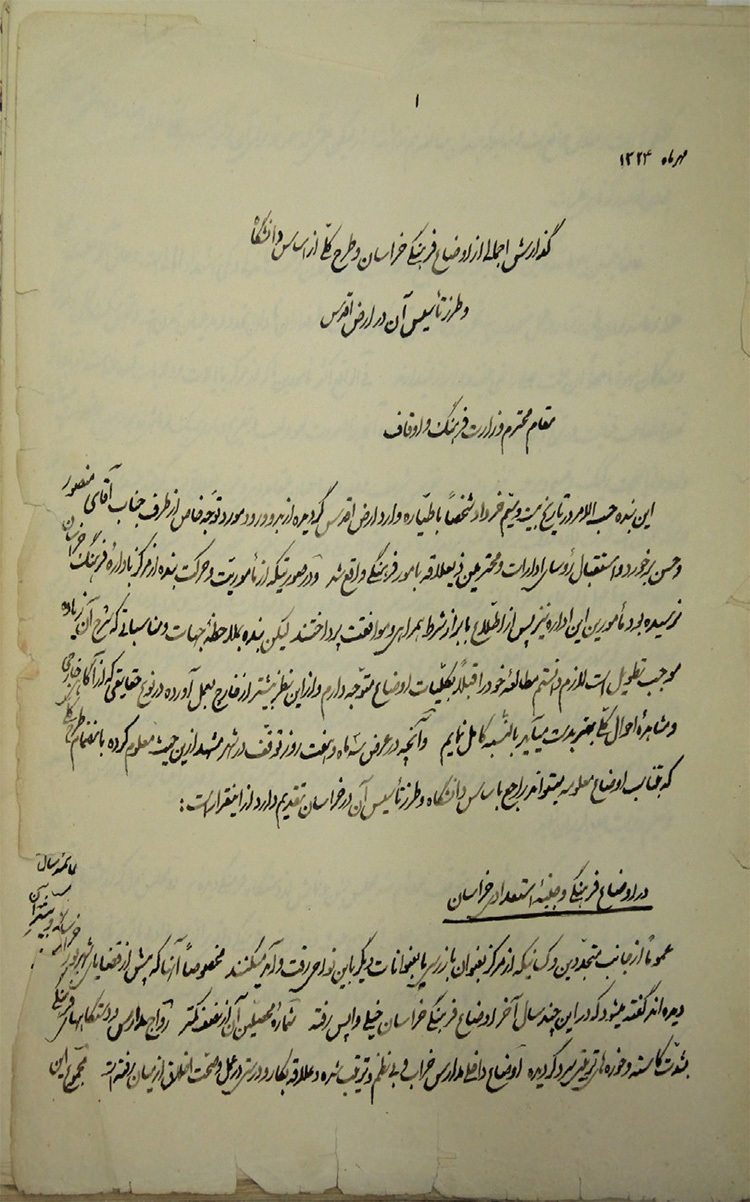 ۱
مهرماه ۱۳۲۴
گذارش اجمالی از اوضاع فرهنگی خراسان و طرح کلّی از اساس دانشگاه
و طرز تأسیس آن در ارض اقدس
مقام محترم وزارت فرهنگ و اوقاف
این بنده حسب الامر در تاریخ بیست و سیّم خرداد شخصاً با طیّاره وارد ارض اقدس گردیده از بدو ورود مورد توجّه خاص از طرف جناب آقای منصور
و حسن برخورد و استقبال رؤسای ادارات و محترمین ذیعلاقه بامور فرهنگی واقع شد و در صورتیکه از مأموریّت و حرکت بنده از مرکز باداره فرهنگ خراسان
نرسیده بود مأمورین این اداره نیز پس از اطّلاع بابراز شرط همراهی و موافقت پرداختند لیکن بنده بملاحظه جهات و مناسباتی که شرح آن زیاده
موجب تطویل است لازم دانستم مطالعه خود را قبلاً بکلّیات اوضاع متوجه دارم و از این نظر بیشتر از خارج بعمل آورده در نوع حقایقی که از آگاهان خارجی
و مشاهده احوال کلّی بهتر بدست میآید بالنّسبه کامل نمایم و آنچه در عرض سه ماه و هفت روز توقّف در شهر مشهد از این حیث معلوم کرده بانضمام طرح کلّی
که بتناسب اوضاع معلومه میتواند راجع باساس دانشگاه و طرز تأسیس آن در خراسان تقدیم دارد از اینقرار است:
در اوضاع فرهنگی و جنبهٔ استعدادی خراسان
عموماً از جانب متجدّدین و کسانیکه از مرکز بعنوان بازرسی یا بعنوانات دیگر باین نواحی رفت و آمد میکنند مخصوصاً آنها که پیش از قضایای شهریور
دیده اند گفته میشود که در این چند سال آخر اوضاع فرهنگی خراسان خیلی واپس رفته شماره محصلین آن از نصف کمتر رواج مدارس و دستگاههای فرهنگی
بشدّت کاسته و حوزه های تربیتی سرد گردیده اوضاع داخلی مدارس خراب و بی نظم و ترتیب شده و علاقه بکار و درستی در عمل و صحت اخلاق از میان رفته است مجموع این